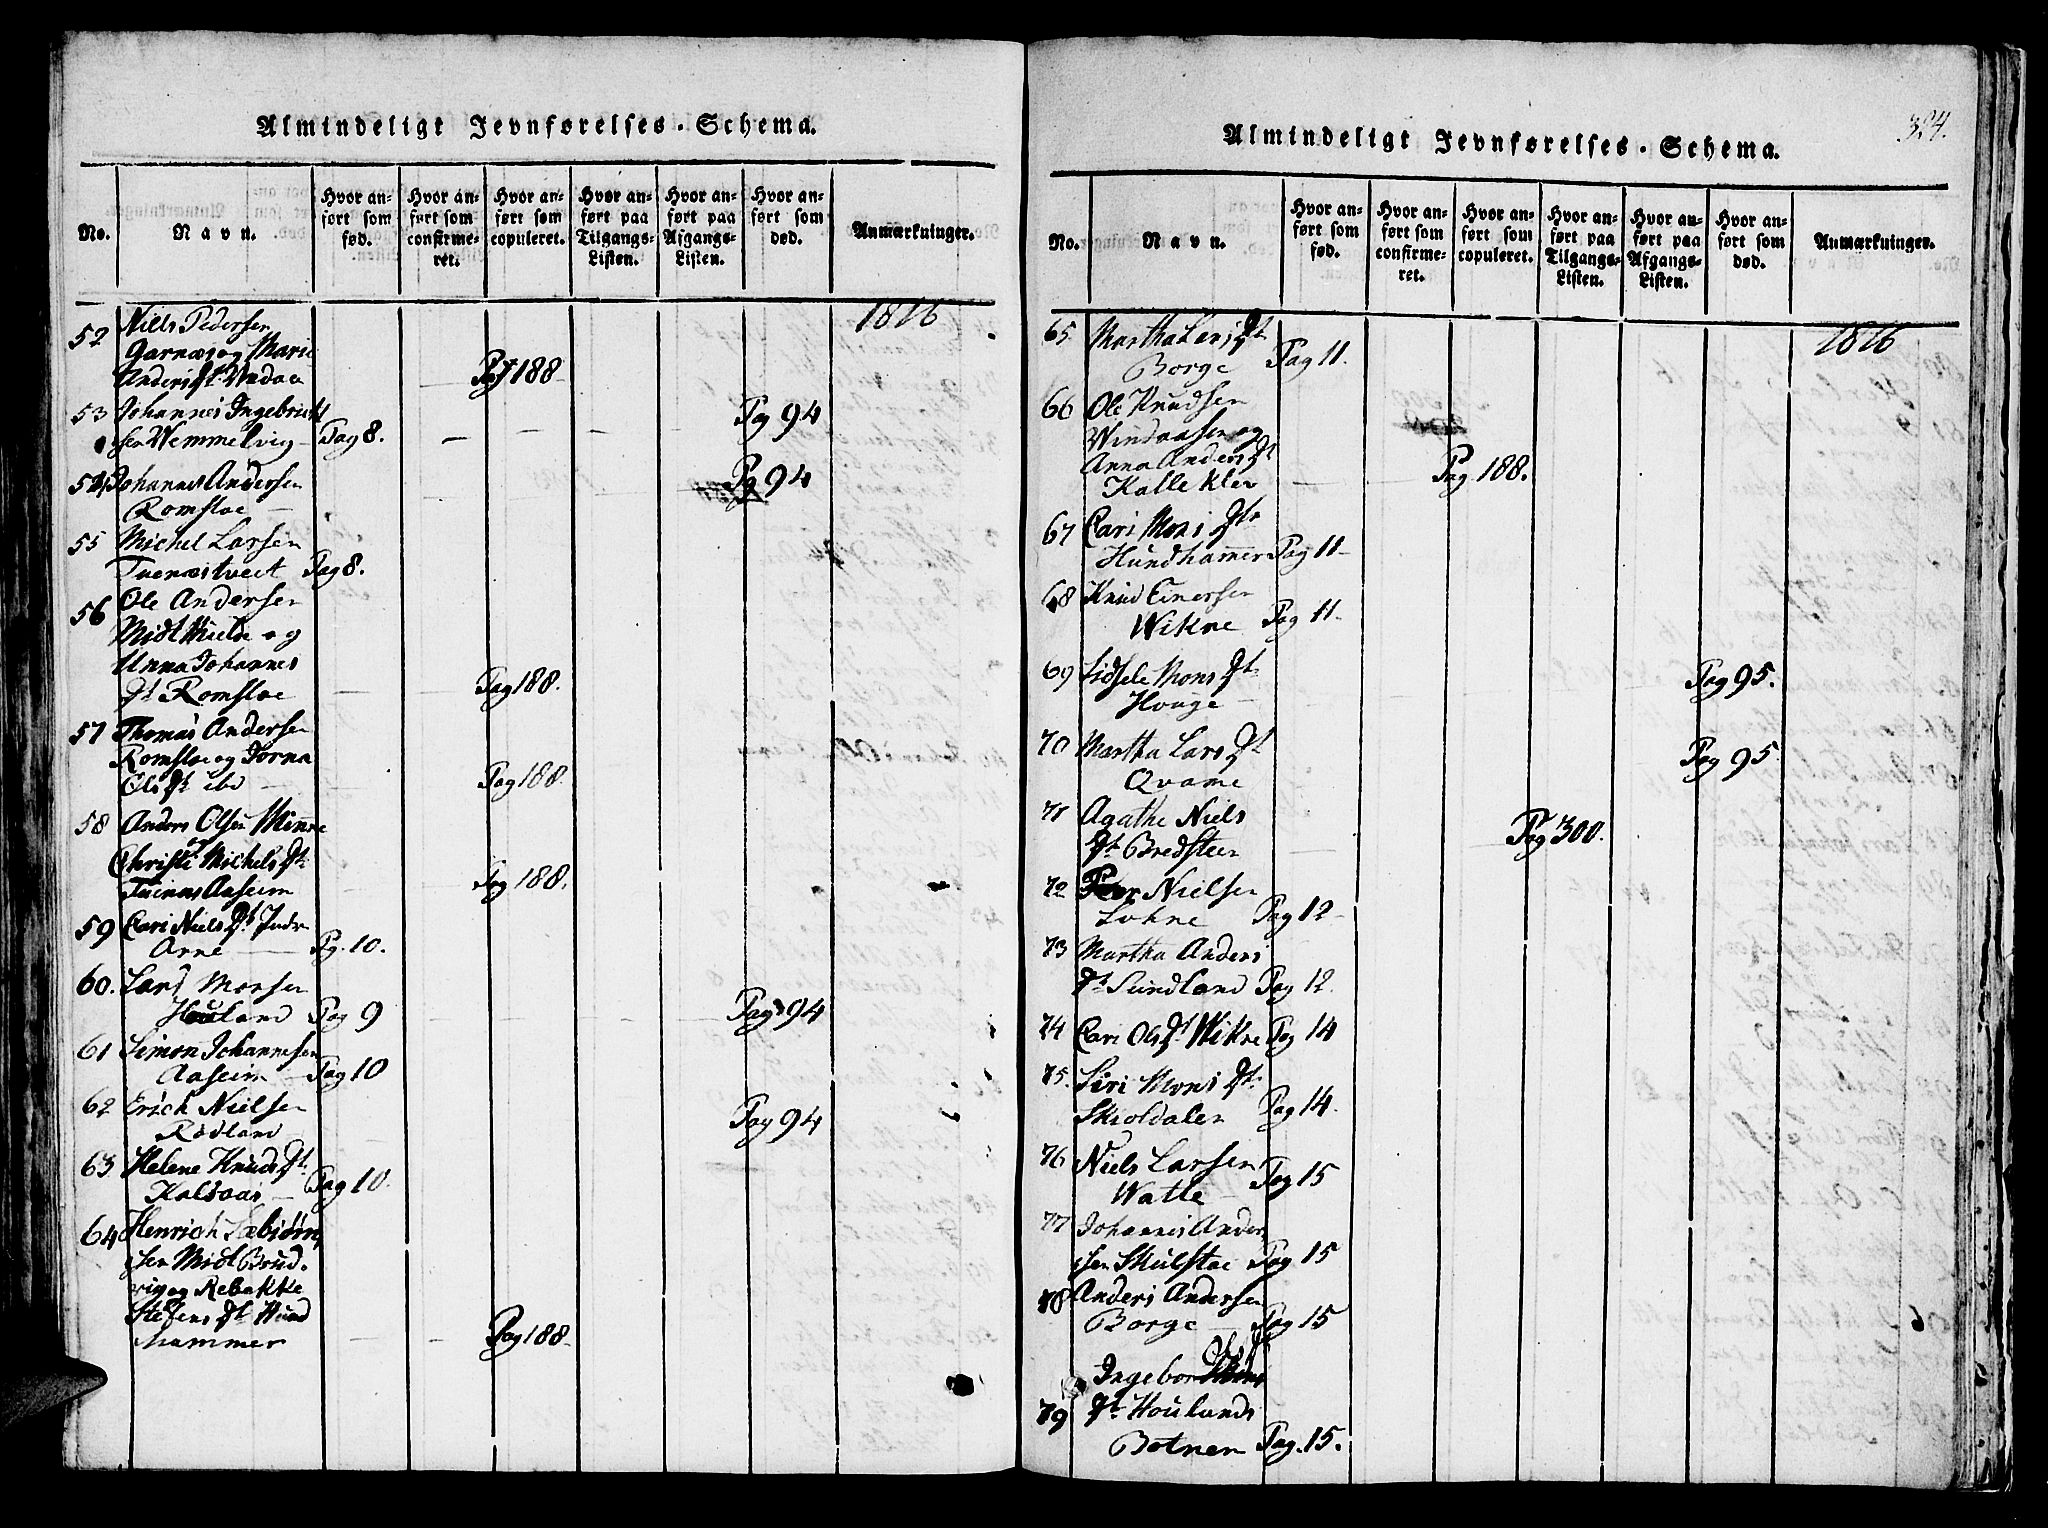 Almindeligt Jevnførelses-Schema.
No.
Navn.
Hvor anført som fød.
Hvor anført som confirmeret.
Hvor anført som copuleret.
Hvor anført paa Tilgangs-Listen.
Hvor anført paa Afgangs-Listen.
Hvor anført som død.
Anmærkninger.
1816
52 Niels Pedersen
Garnæs og Marie
Anders Dt. Pag 188
53 Johannes Ingebrigt
sen Wemmelvig Pag 8. Pg 94
54 Johannes Andersen Pg 94
Romsloe
55 Michel Larsen
Tvenæstveet Pag 8.
56 Ole Andersen
og
Anna Johannes
Dt Romsloe Pag 188.
57 Thomas Andersen
Romsloe og
Ols Dt ibd Pag 188.
58 Anders Olsen
Michels Dt.
Aaseim Pag 188.
59 Cari Niels Dt Indr
Arne Pg. 10.
60. Lars Monsen
Houland Pag 9 Pag 94
61 Simon Johannesen
Aaseim Pag 10
62 Erich Nielsen
Rødland Pag 94
63 Helene Knuds Dt.
Kaldaas Pag 10
64 Henrich
sen Midt
vig og Rebekke
Stefens Dt Hund
hammer Pag 188.
324.
Almindeligt Jevnførelses-Schema.
No.
Navn.
Hvor anført som fød.
Hvor anført som confirmeret.
Hvor anført som copuleret.
Hvor anført paa Tilgangs-Listen.
Hvor anført paa Afgangs-Listen.
Hvor anført som død.
Anmærkninger.
1816
65 Martha Lars Dt.
Borge Pag 11.
66 Ole Knudsen
og
Anna Anders Dt
Kalleklev Pag 188.
67 Cari Mons Dtr
Hundhamer Pag 11
68 Knud Einersen
Wikne Pag 11
69 Sidsele Mons Dt.
Houge Pag 95.
70 Martha Lars Dt
Qvame Pag 95
71 Agathe Niels
Dt Bredsteen Pag 300.
72 Nielsen
Lohne Pag 12
73 Martha Anders
Dt Sundland Pag 12.
74 Cari Ols Dt Wikne Pag 14
75. Siri Mons Dt.
Skioldalen Pag 14.
76 Niels Larsen
Watle Pag 15
77 Johannes Ander
sen Skulstae Pag 15
78 Anders Andersen
Borge Pag 15
Ingebor
79 Dt Houlands
Botnen Pag. 15.